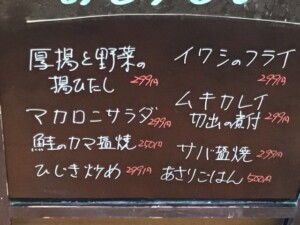 厚揚と野菜の
揚ひたし 299円
マカロニサラダ 299円
鮭のカマ塩焼 250円
ひじき炒め 299円
イワシのフライ
299円
ムキカレイ
切出の煮付 299円
サバ塩焼 299円
あさりごはん 500円